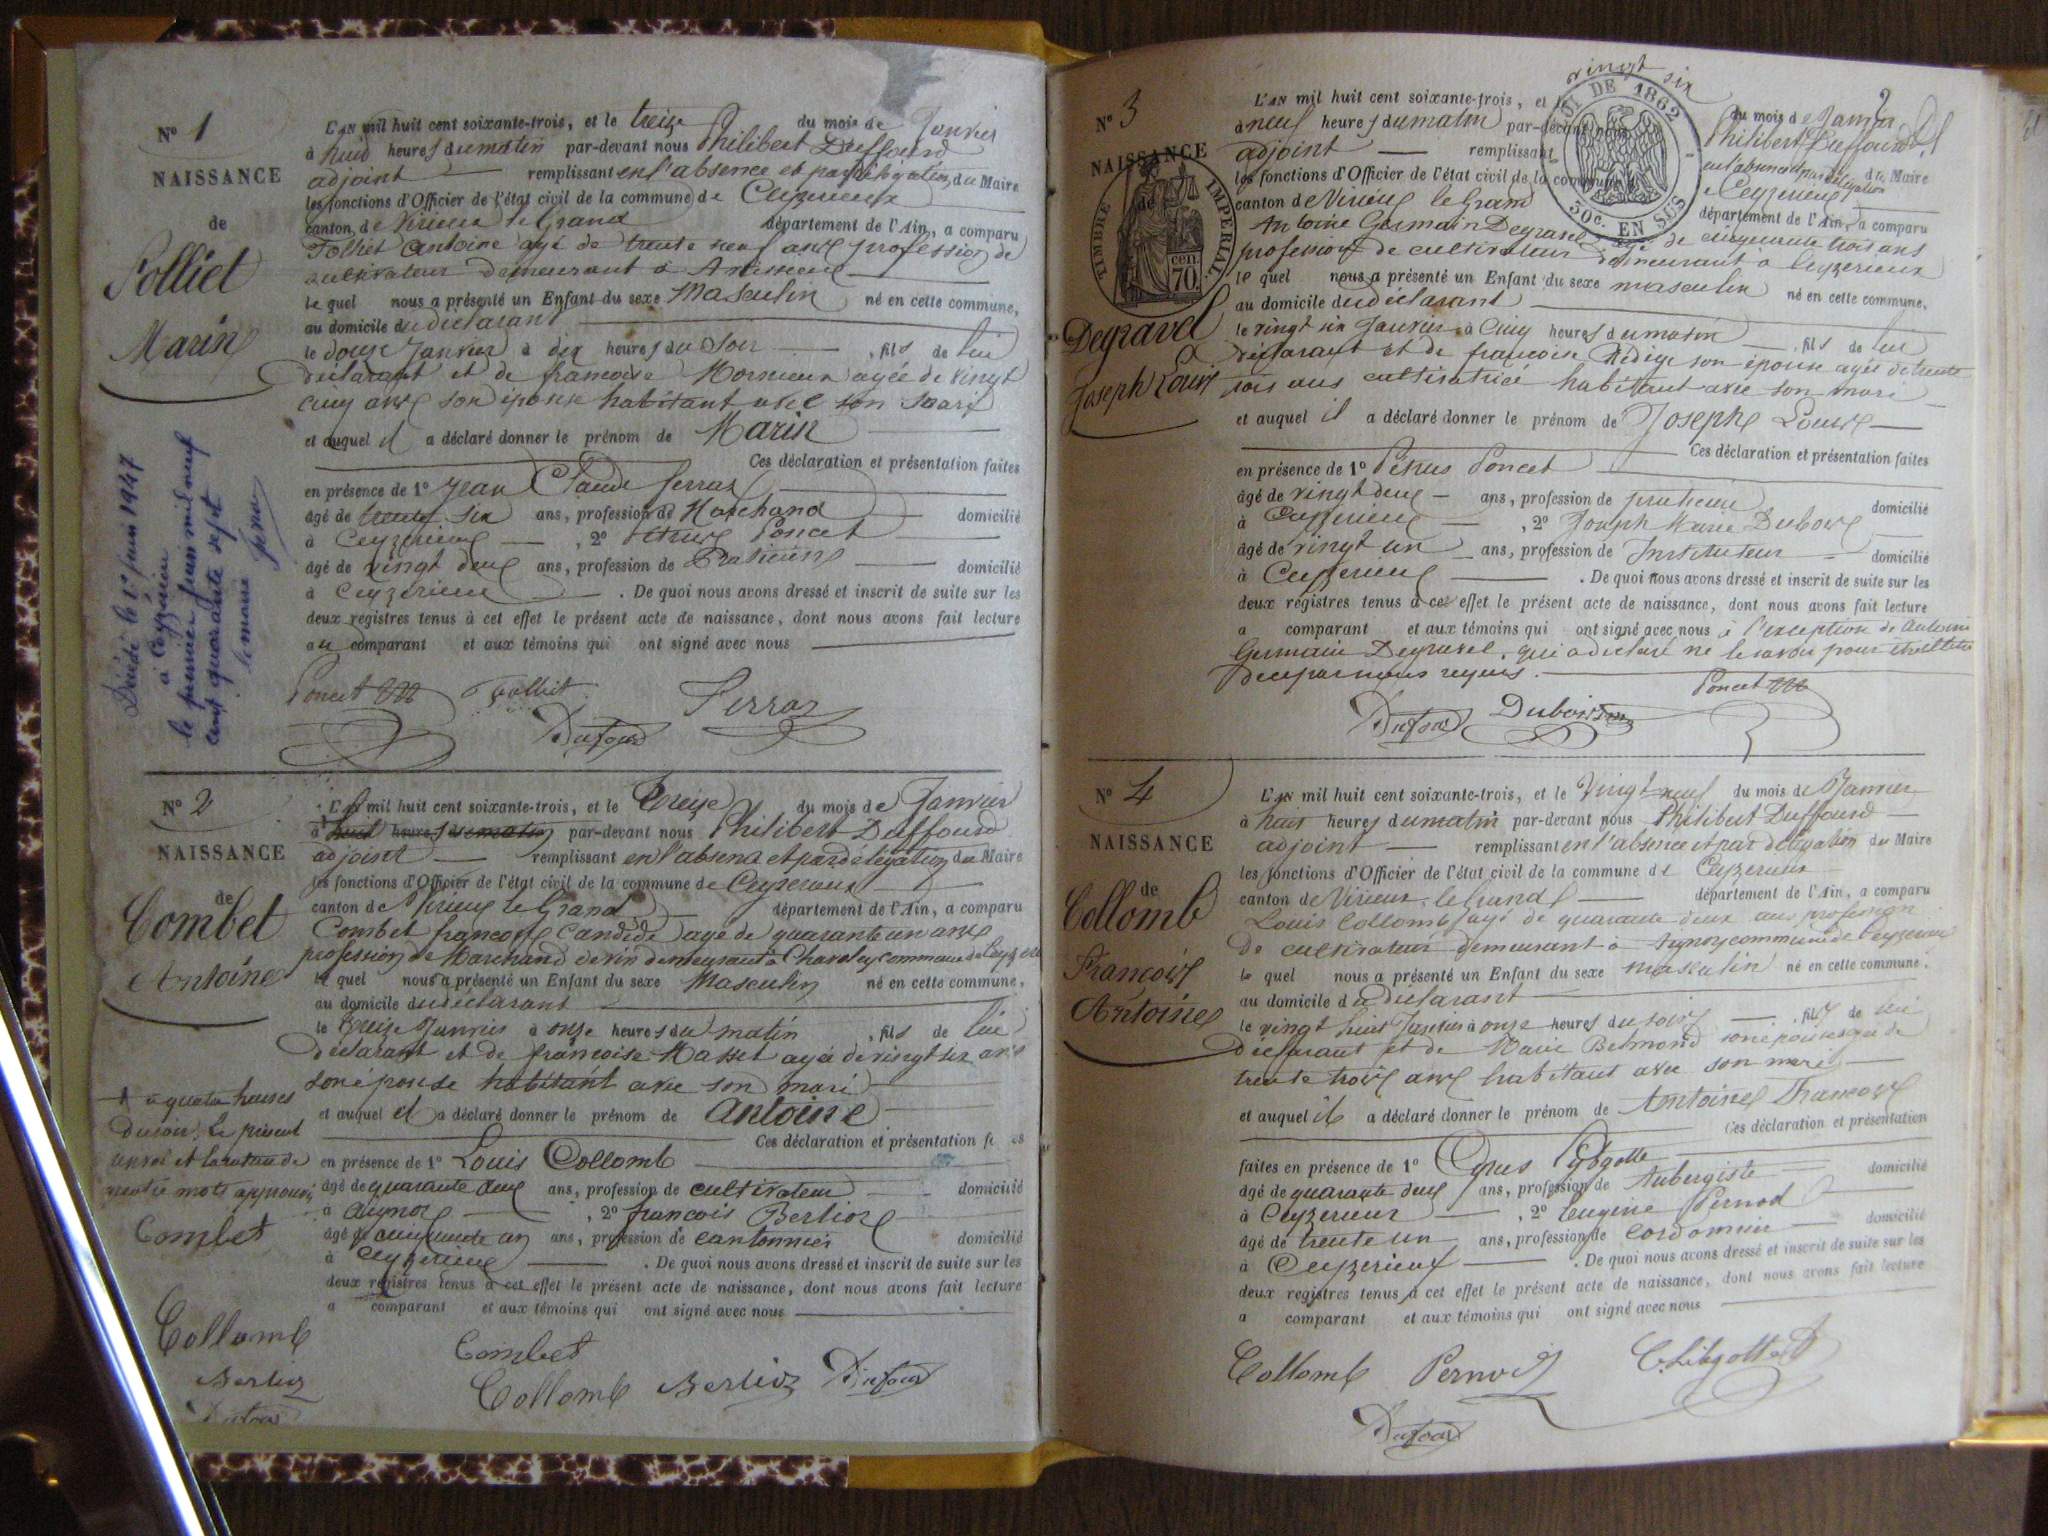 N° 1
NAISSANCE
de
Folliet
Marin
L'AN mil huit cent soixante-trois, et le treize du mois de Janvier
à huit heures du matin par-devant nous Philibert Duffourd
adjoint remplissant en l'absence et par délégation du Maire
les fonctions d'Officier de l'état civil de la commune de Ceyzerieux
canton de Virieu le Grand département de l'Ain, a comparu
Folliet Antoine agé de trente neuf ans profession de
cultivateur demeurant à
le quel nous a présenté un Enfant du sexe Masculin né en cette commune,
au domicile du déclarant
le douze Janvier à dix heures du soir, fils de lui
déclarant et de francoise agée de vingt
cinq ans son épouse habitant avec son mari
et auquel il a déclaré donner le prénom de Marin
Ces déclaration et présentation faites
en présence de 1° Jean Claude Serraz
âgé de trente six ans, profession de Marchand domicilié
à Ceyzerieux, 2° Petrus Poncet
âgé de vingt deux ans, profession de Praticien domicilié
à Ceyzerieux. De quoi nous avons dressé et inscrit de suite sur les
deux registres tenus à cet effet le présent acte de naissance, dont nous avons fait lecture
au comparant et aux témoins qui ont signé avec nous
Poncet Folliet Serraz
Dufourd
Décédé le 1er juin 1947
à Ceyzérieu
le premier juin mil neuf
cent quarante sept
le maire
N° 2
NAISSANCE
de
Combet
Antoine
L'AN mil huit cent soixante-trois, et le treize du mois de Janvier
à huit heures du matin par-devant nous Philibert Duffourd
adjoint remplissant en l'absence et par délégation du Maire
les fonctions d'Officier de l'état civil de la commune de Ceyzerieux
canton de Virieu le Grand département de l'Ain, a comparu
Combet francois Candide agé de quarante un ans
profession de Marchand de vin demeurant à commune de
le quel nous a présenté un Enfant du sexe Masculin né en cette commune,
au domicile du déclarant
le treize Janvier à onze heures du matin, fils de lui
déclarant et de françoise Masset agée de vingt six ans
son épouse habitant avec son mari
et auquel il a déclaré donner le prénom de Antoine
Ces déclaration et présentation faites
en présence de 1° Louis Collomb
âgé de quarante deux ans, profession de cultivateur domicilié
à Aignoz, 2° francois Berlioz
âgé de cinquante un ans, profession de cantonnier domicilié
à Ceyzerieux. De quoi nous avons dressé et inscrit de suite sur les
deux registres tenus à cet effet le présent acte de naissance, dont nous avons fait lecture
a comparant et aux témoins qui ont signé avec nous
à quatre heures
du soir. Le présent
renvoi et la rature de
mots approuvés
Combet
Collomb
Berlioz
Dufourd
Combet
Collomb Berlioz Dufourd
N° 3
NAISSANCE
de
TIMBRE IMPERIAL
cen. 70.
Degravel
Joseph Louis
vingt six
2
LOI DE 1862
50c. EN SUS
L'AN mil huit cent soixante-trois, et le du mois de Janvier
à neuf heures du matin par-devant nous Philibert Duffourd
adjoint remplissant en l'absence et par délégation du Maire
les fonctions d'Officier de l'état civil de la commune de Ceyzerieux
canton de Virieu le Grand département de l'Ain, a comparu
Antoine Germain Degravel agé de cinquante trois ans
profession de cultivateur demeurant à Ceyzerieux
le quel nous a présenté un Enfant du sexe masculin né en cette commune,
au domicile du déclarant
le vingt six Janvier à cinq heures du matin, fils de lui
déclarant et de francoise son épouse agée de trente
trois ans cultivatrice habitant avec son mari
et auquel il a déclaré donner le prénom de Joseph Louis
Ces déclaration et présentation faites
en présence de 1° Pétrus Poncet
âgé de vingt deux ans, profession de praticien domicilié
à Ceyzerieux, 2° Joseph Marie Dubois
âgé de vingt un ans, profession de Instituteur domicilié
à Ceyzerieux. De quoi nous avons dressé et inscrit de suite sur les
deux registres tenus à cet effet le présent acte de naissance, dont nous avons fait lecture
a comparant et aux témoins qui ont signé avec nous à l'exception de Antoine
Germain Degravel, qui a déclaré ne le savoir pour
de ce par nous requis.
Poncet
Dufourd Dubois
N° 4
NAISSANCE
de
Collomb
François
Antoine
L'AN mil huit cent soixante-trois, et le Vingt neuf du mois de Janvier
à huit heures du matin par-devant nous Philibert Duffourd
adjoint remplissant en l'absence et par délégation du Maire
les fonctions d'Officier de l'état civil de la commune de Ceyzerieux
canton de Virieux le Grand département de l'Ain, a comparu
Louis Collomb agé de quarante deux ans profession
de cultivateur demeurant à Aignoz commune de Ceyzerieux
le quel nous a présenté un Enfant du sexe masculin né en cette commune,
au domicile du déclarant
le vingt huit Janvier à onze heures du soir, fils de lui
déclarant et de Marie Belmond son épouse agée de
trente trois ans habitant avec son mari
et auquel il a déclaré donner le prénom de Antoine Francois
Ces déclaration et présentation
faites en présence de 1° Cyrus
âgé de quarante deux ans, profession de Aubergiste domicilié
à Ceyzerieux, 2° Eugène Pernod
âgé de trente un ans, profession de cordonnier domicilié
à Ceyzerieux. De quoi nous avons dressé et inscrit de suite sur les
deux registres tenus à cet effet le présent acte de naissance, dont nous avons fait lecture
a comparant et aux témoins qui ont signé avec nous
Collomb Pernod
Dufourd